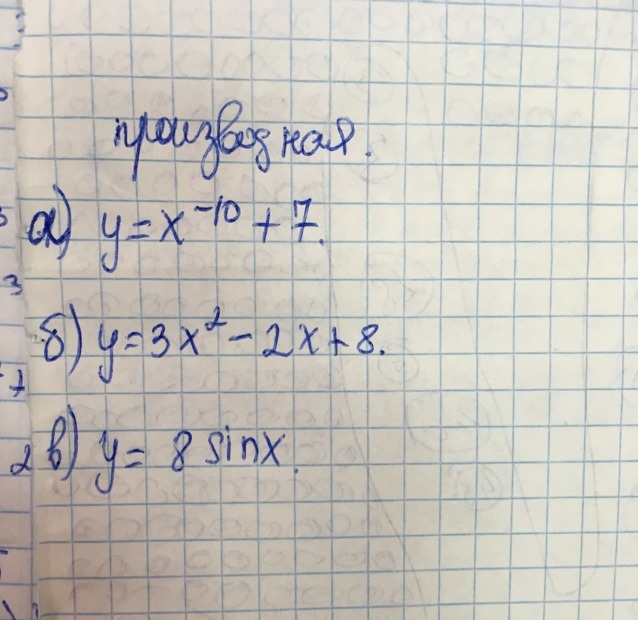 производная.
а) y = x⁻¹⁰ + 7.
б) y = 3x² - 2x + 8.
в) y = 8 sinx.